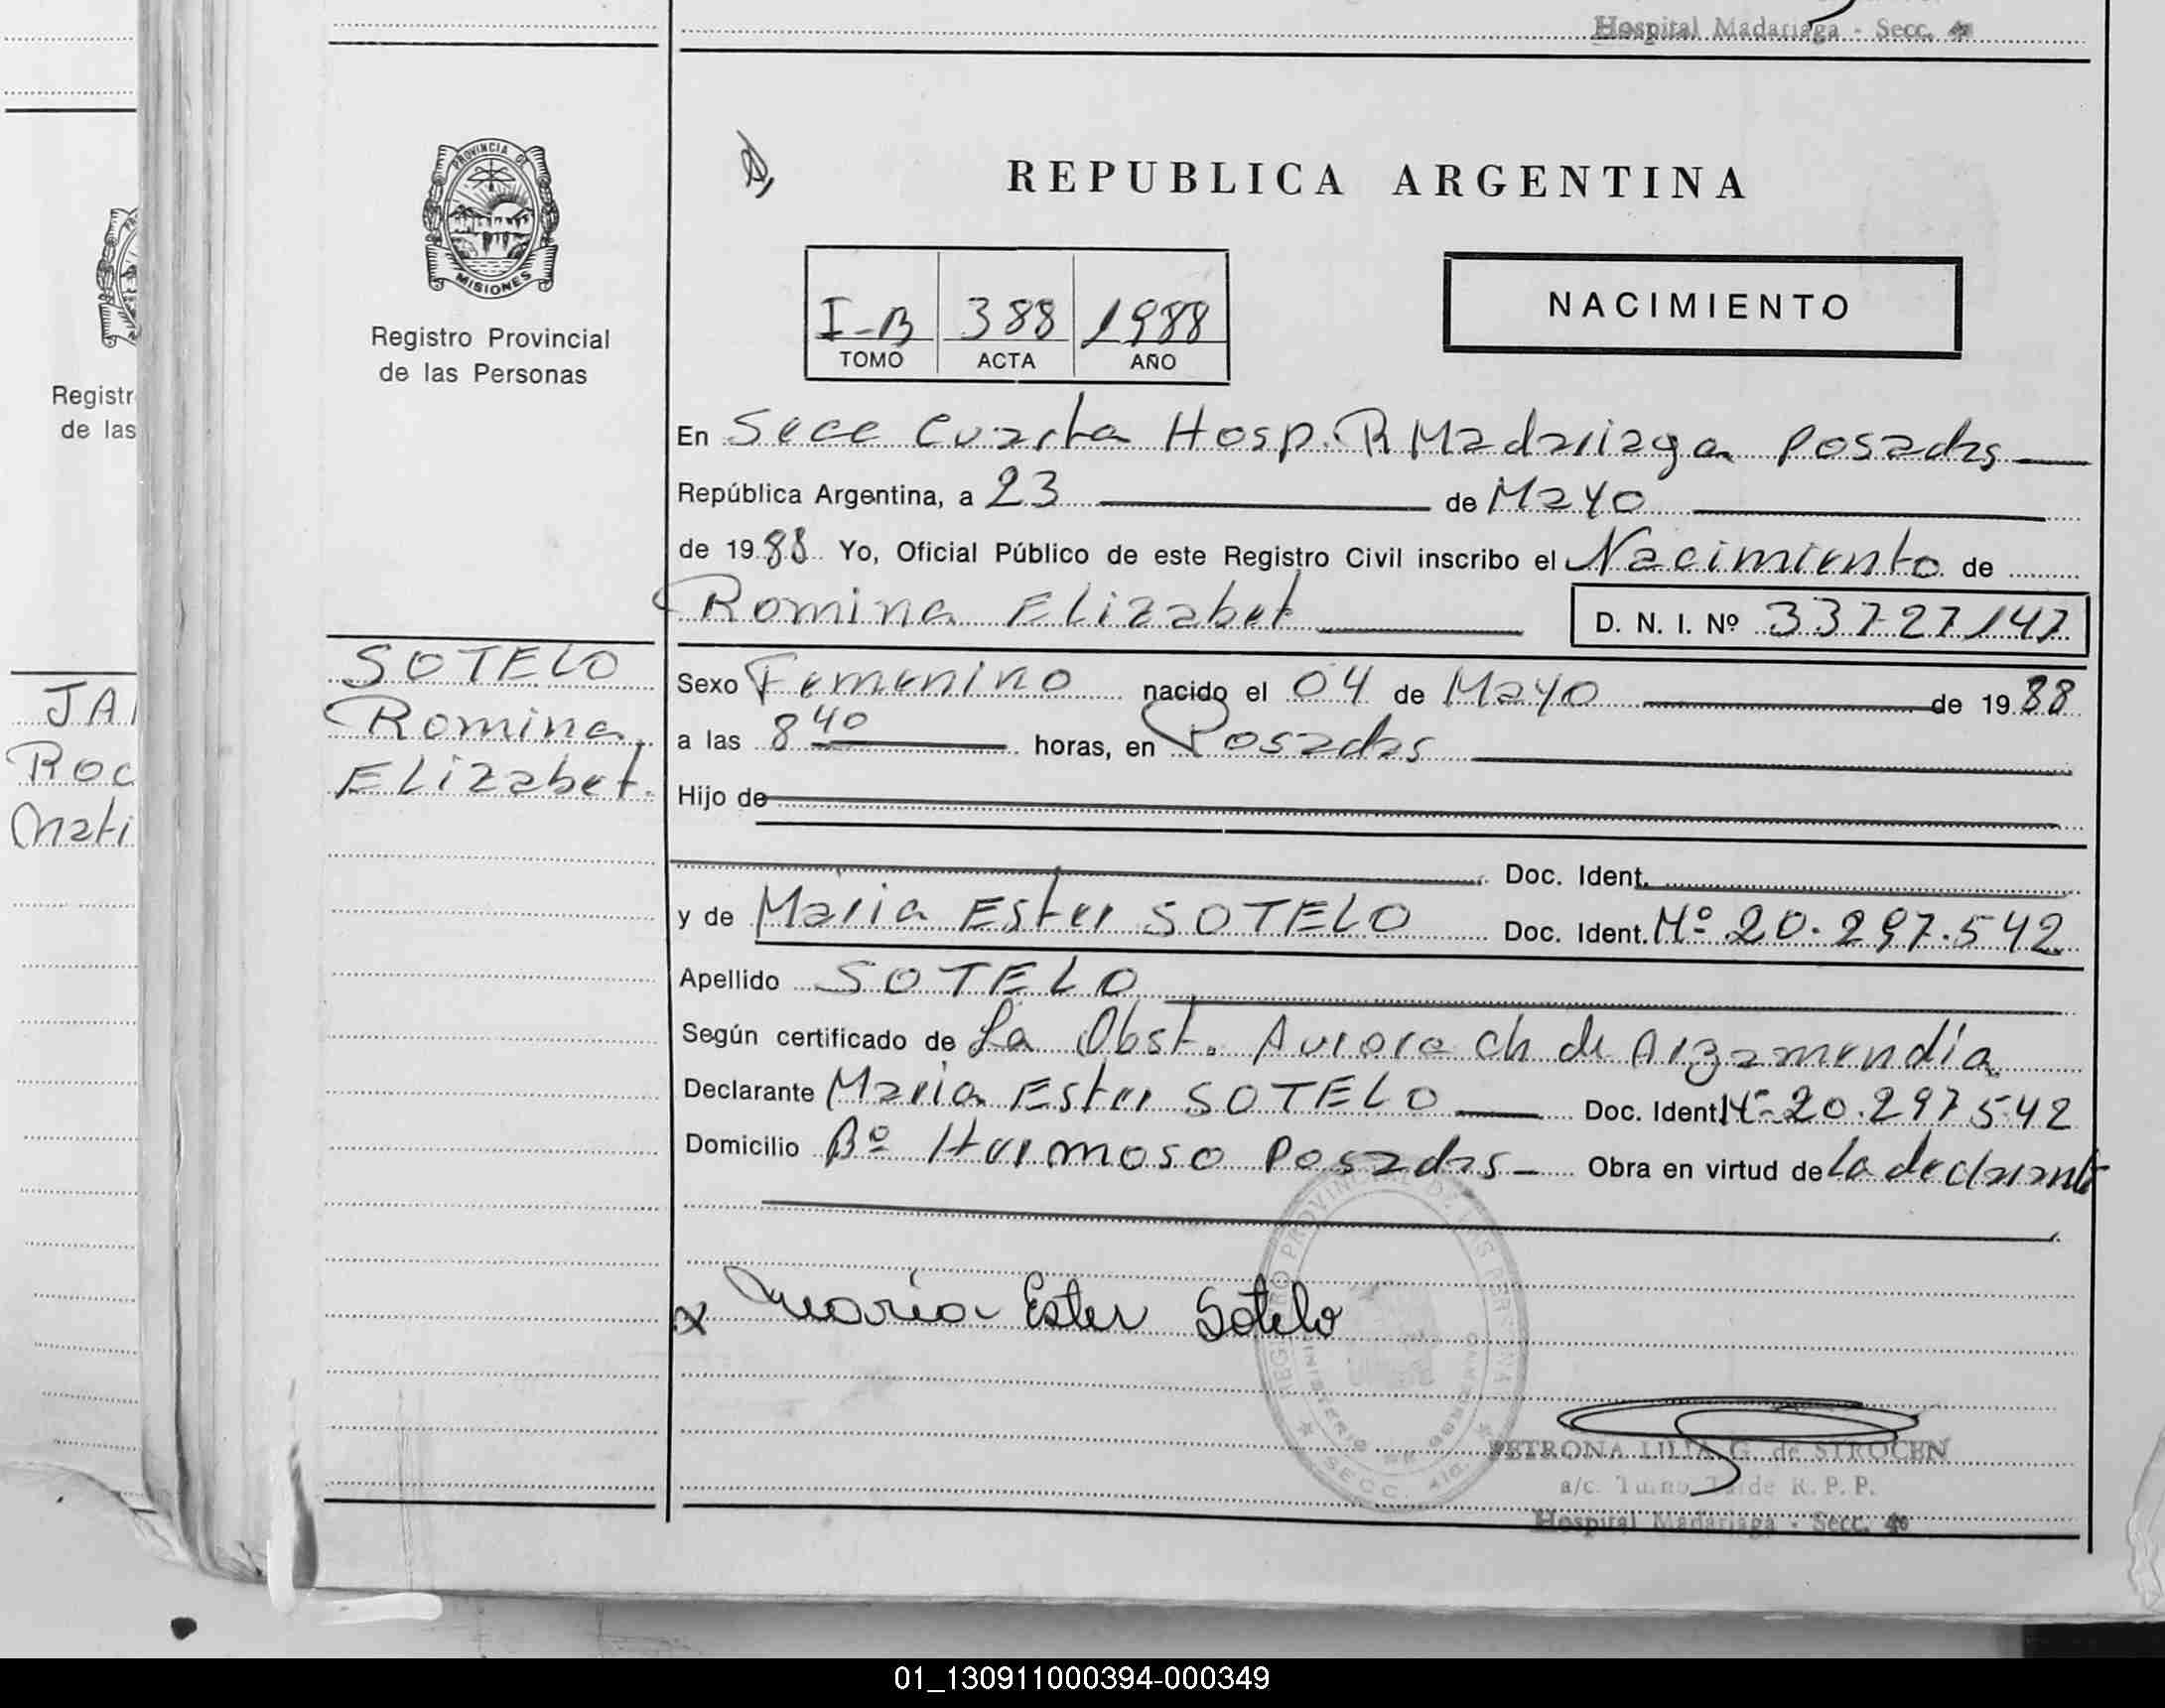 Hospital Madariaga - Secc. 4ª
PROVINCIA DE
MISIONES
Registro Provincial
de las Personas
Registr
de las
REPUBLICA ARGENTINA
I-B 388 1988
TOMO ACTA AÑO
NACIMIENTO
En Secc Cuarta Hosp. R Madariaga Posadas
República Argentina, a 23 de Mayo
de 1988 Yo, Oficial Público de este Registro Civil inscribo el Nacimiento de
Romina Elizabet D. N. I. Nº 33727147
SOTELO
Romina
Elizabet.
JA
Roc
Mati
Sexo Femenino nacido el 04 de Mayo de 1988
a las 8 40 horas, en Posadas
Hijo de
Doc. Ident.
y de Maria Ester SOTELO Doc. Ident. Nº 20.297.542
Apellido SOTELO
Según certificado de La Obst. Aurora Ch de Arzamendia
Declarante Maria Ester SOTELO Doc. Ident. Nº 20.297542
Domicilio Bº Hermoso Posadas Obra en virtud de La declarante
REGISTRO PROVINCIAL DE LAS PERSONAS
MINISTERIO DE GOBIERNO
SECC.
x Maria Ester Sotelo
PETRONA LILIA G. de STROCEN
a/c. Turno Tarde R. P. P.
Hospital Madariaga - Secc. 4ª
01_130911000394-000349